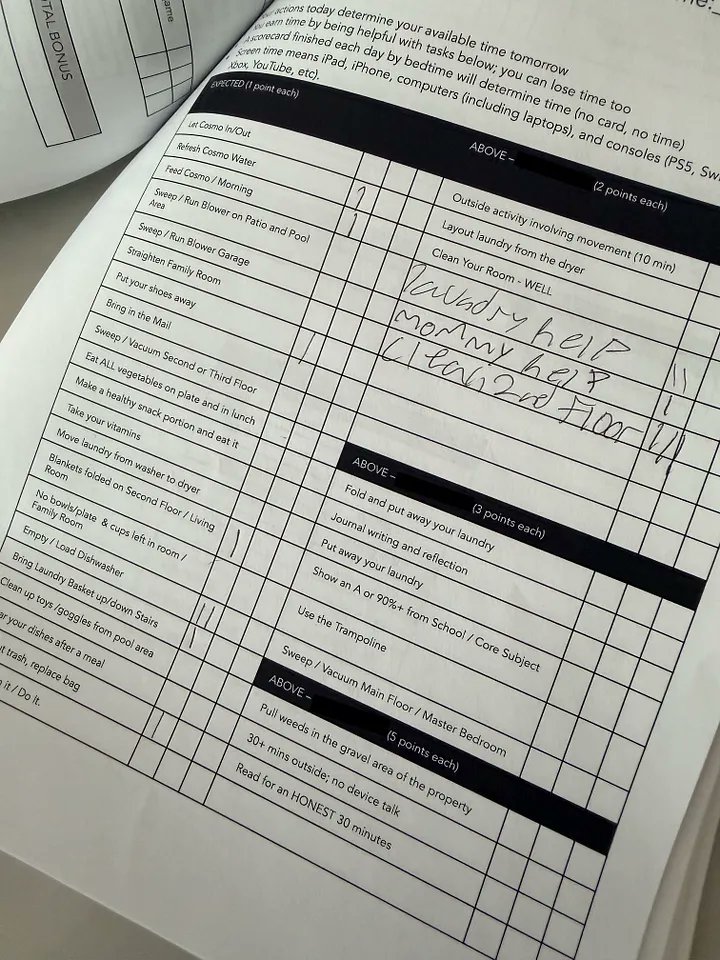 TAL BONUS
ame
me:
actions today determine your available time tomorrow
earn time by being helpful with tasks below; you can lose time too
A scorecard finished each day by bedtime will determine time (no card, no time)
Screen time means iPad, iPhone, computers (including laptops), and consoles (PS5, Sw
Xbox, YouTube, etc).
EXPECTED (1 point each)
Let Cosmo In/Out
Refresh Cosmo Water
Feed Cosmo / Morning
Sweep / Run Blower on Patio and Pool
Area
Sweep / Run Blower Garage
Straighten Family Room
Put your shoes away
Bring in the Mail
Sweep / Vacuum Second or Third Floor
Eat ALL vegetables on plate and in lunch
Make a healthy snack portion and eat it
Take your vitamins
Move laundry from washer to dryer
Blankets folded on Second Floor / Living
Room
No bowls/plate & cups left in room /
Family Room
Empty / Load Dishwasher
Bring Laundry Basket up/down Stairs
Clean up toys /goggles from pool area
ar your dishes after a meal
t trash, replace bag
it / Do it.
ABOVE – (2 points each)
Outside activity involving movement (10 min)
Layout laundry from the dryer
Clean Your Room - WELL
laundry help
mommy help
clean 2nd Floor
ABOVE – (3 points each)
Fold and put away your laundry
Journal writing and reflection
Put away your laundry
Show an A or 90%+ from School / Core Subject
Use the Trampoline
Sweep / Vacuum Main Floor / Master Bedroom
ABOVE – (5 points each)
Pull weeds in the gravel area of the property
30+ mins outside; no device talk
Read for an HONEST 30 minutes